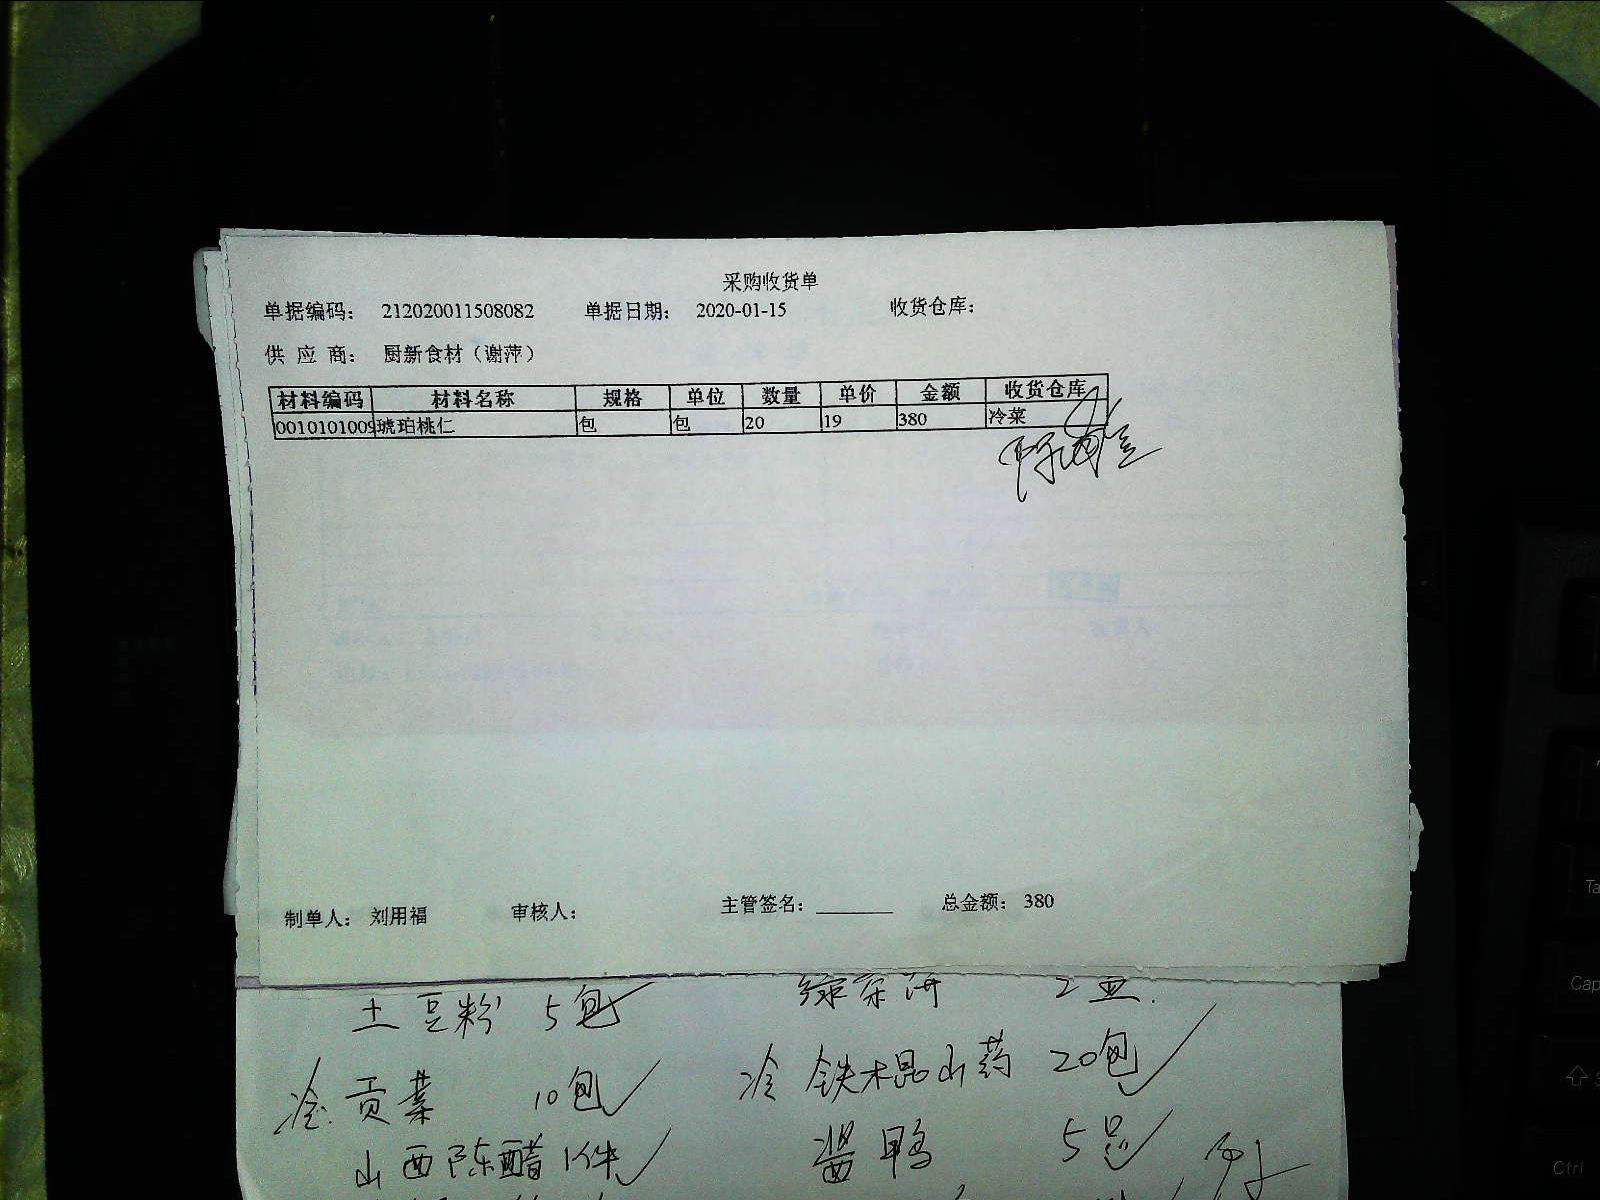 采购收货单
单据编码： 212020011508082 单据日期： 2020-01-15 收货仓库：
供 应 商： 厨新食材（谢萍）
材料编码 材料名称 规格 单位 数量 单价 金额 收货仓库
0010101009 琥珀桃仁 包 包 20 19 380 冷菜
制单人： 刘用福 审核人： 主管签名： ________ 总金额： 380
土豆粉 5包 2盒.
冷.贡菜 10包 冷 铁棍山药 20包
山西陈醋 1件 酱鸭 5只
Ctrl